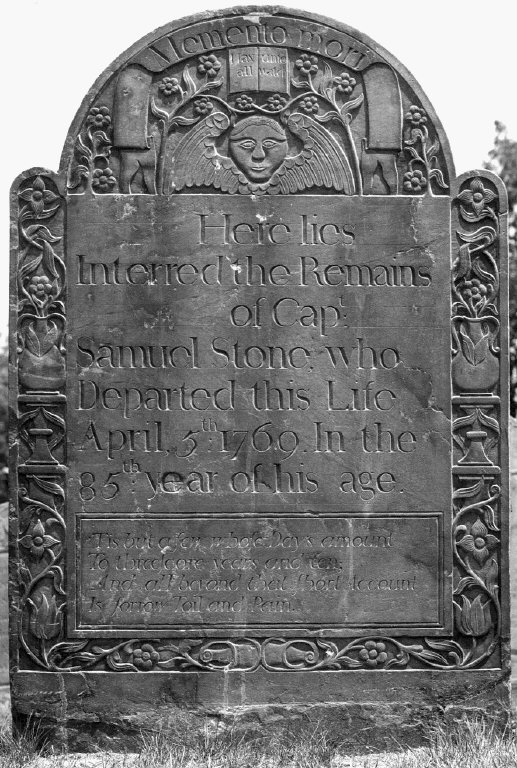 Memento mori
all
Here lies
Interred the Remains
of Capt.
Samuel Stone, who
Departed this Life
April, 5th 1769. In the
85th year of his age.
'Tis but a few whose Days amount
To threescore years and ten;
And all beyond that short Account
Is sorrow Toil and Pain.